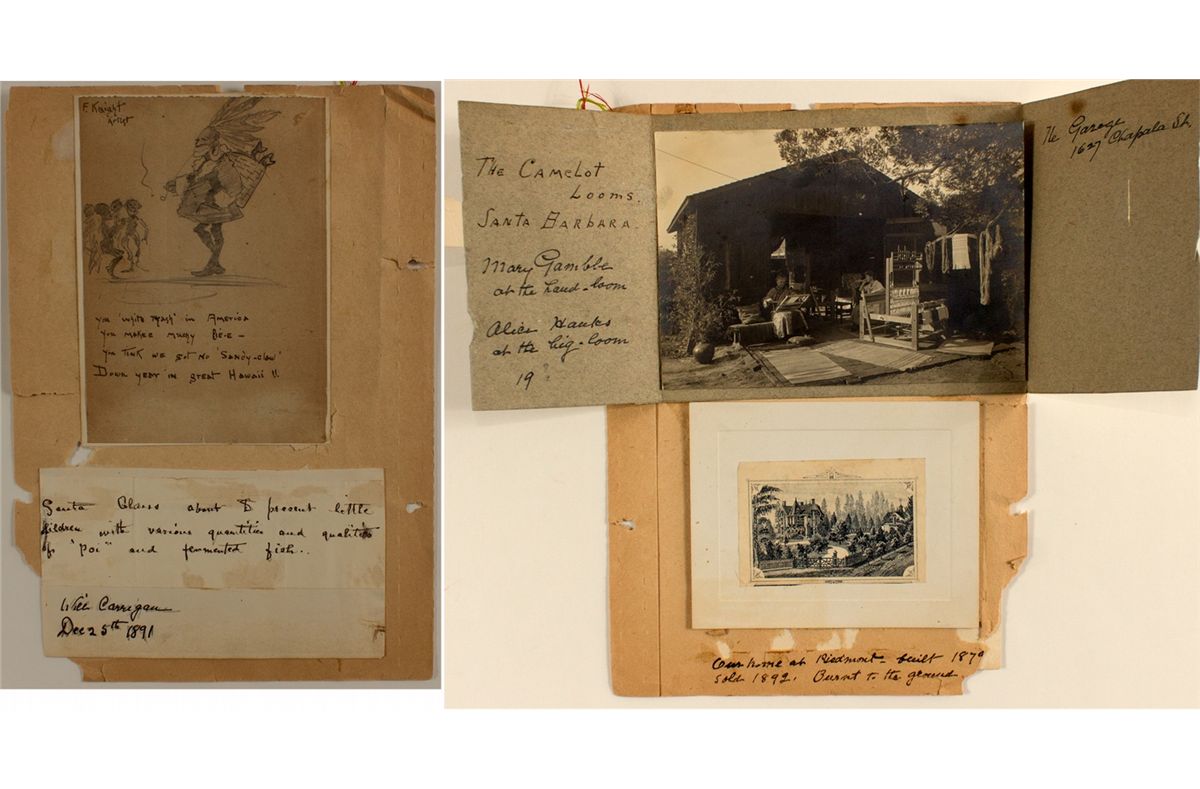 F. Knight
Artist
you 'white trash' in America
you makee muchy Bé-e –
you tink we got no 'Sandy-claw'
Down year in great Hawaii !!
Santa Claus about to present little
children with various quantities and qualities
of "poi" and fermented fish..
Will Carrigan
Dec 25th 1891
The Camelot
Looms.
Santa Barbara.
Mary Gamble
at the hand-loom
Alice Hanks
at the big-loom
19 ?
The Garage
1627 Chapala St.
Our home at Piedmont – built 1879
Sold 1892. Burnt to the ground.